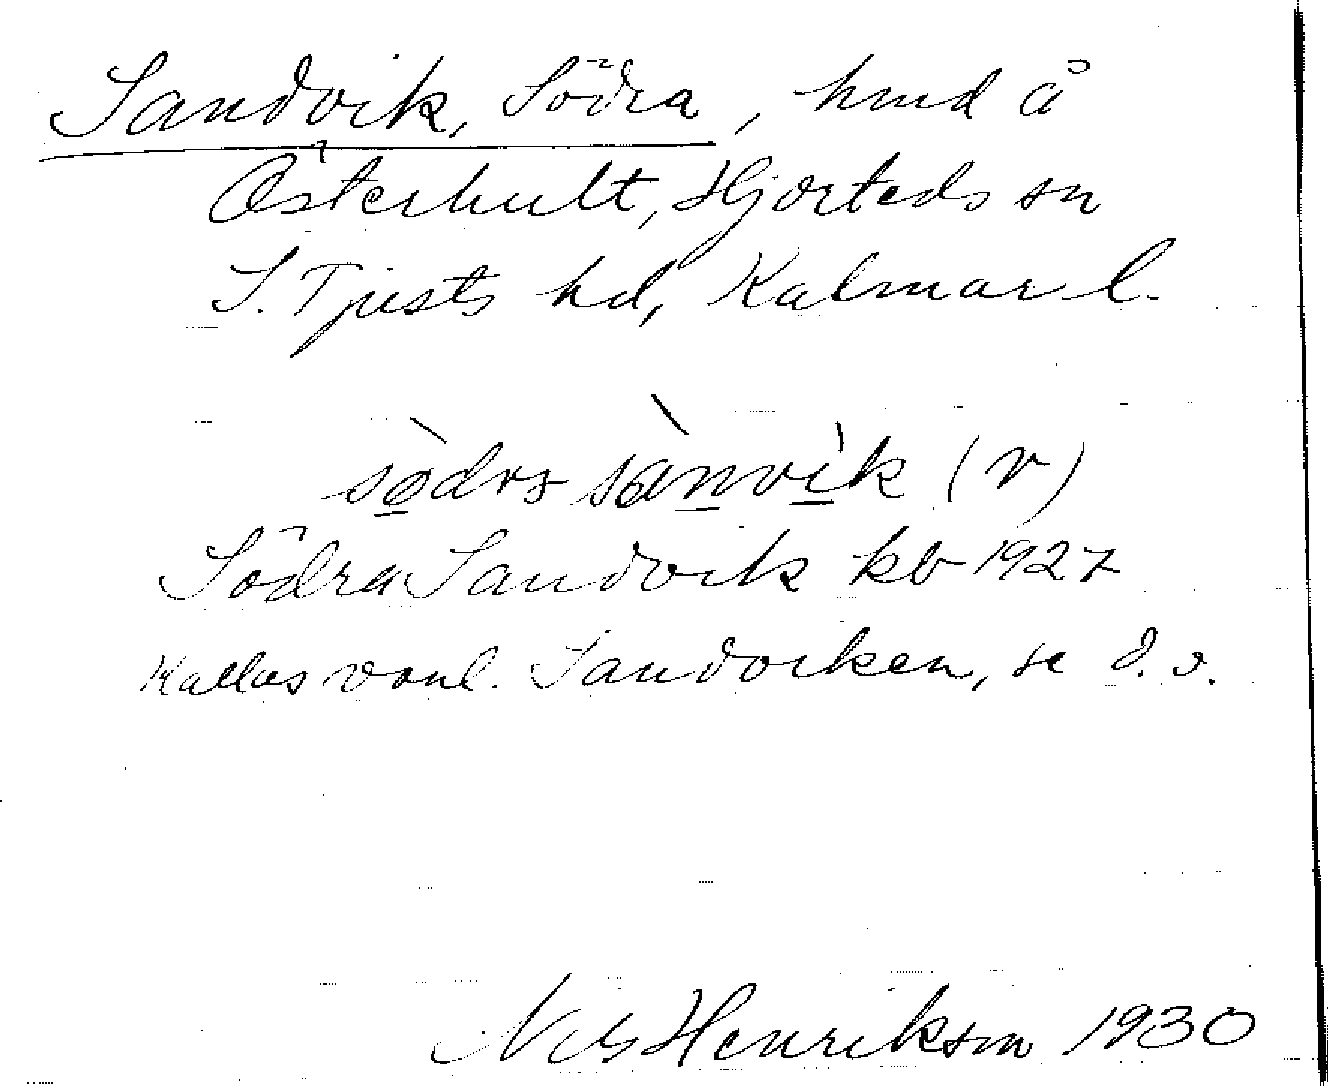 Sandvik, Södra, hmd å
Österhult, Hjorteds sn
S. Tjusts hd, Kalmar l.
sø̀drə sànvìk (r)
Södra Sandvik kb 1927
Kallas vanl. Sandviken, se d. o.
Nils Henrikson 1930